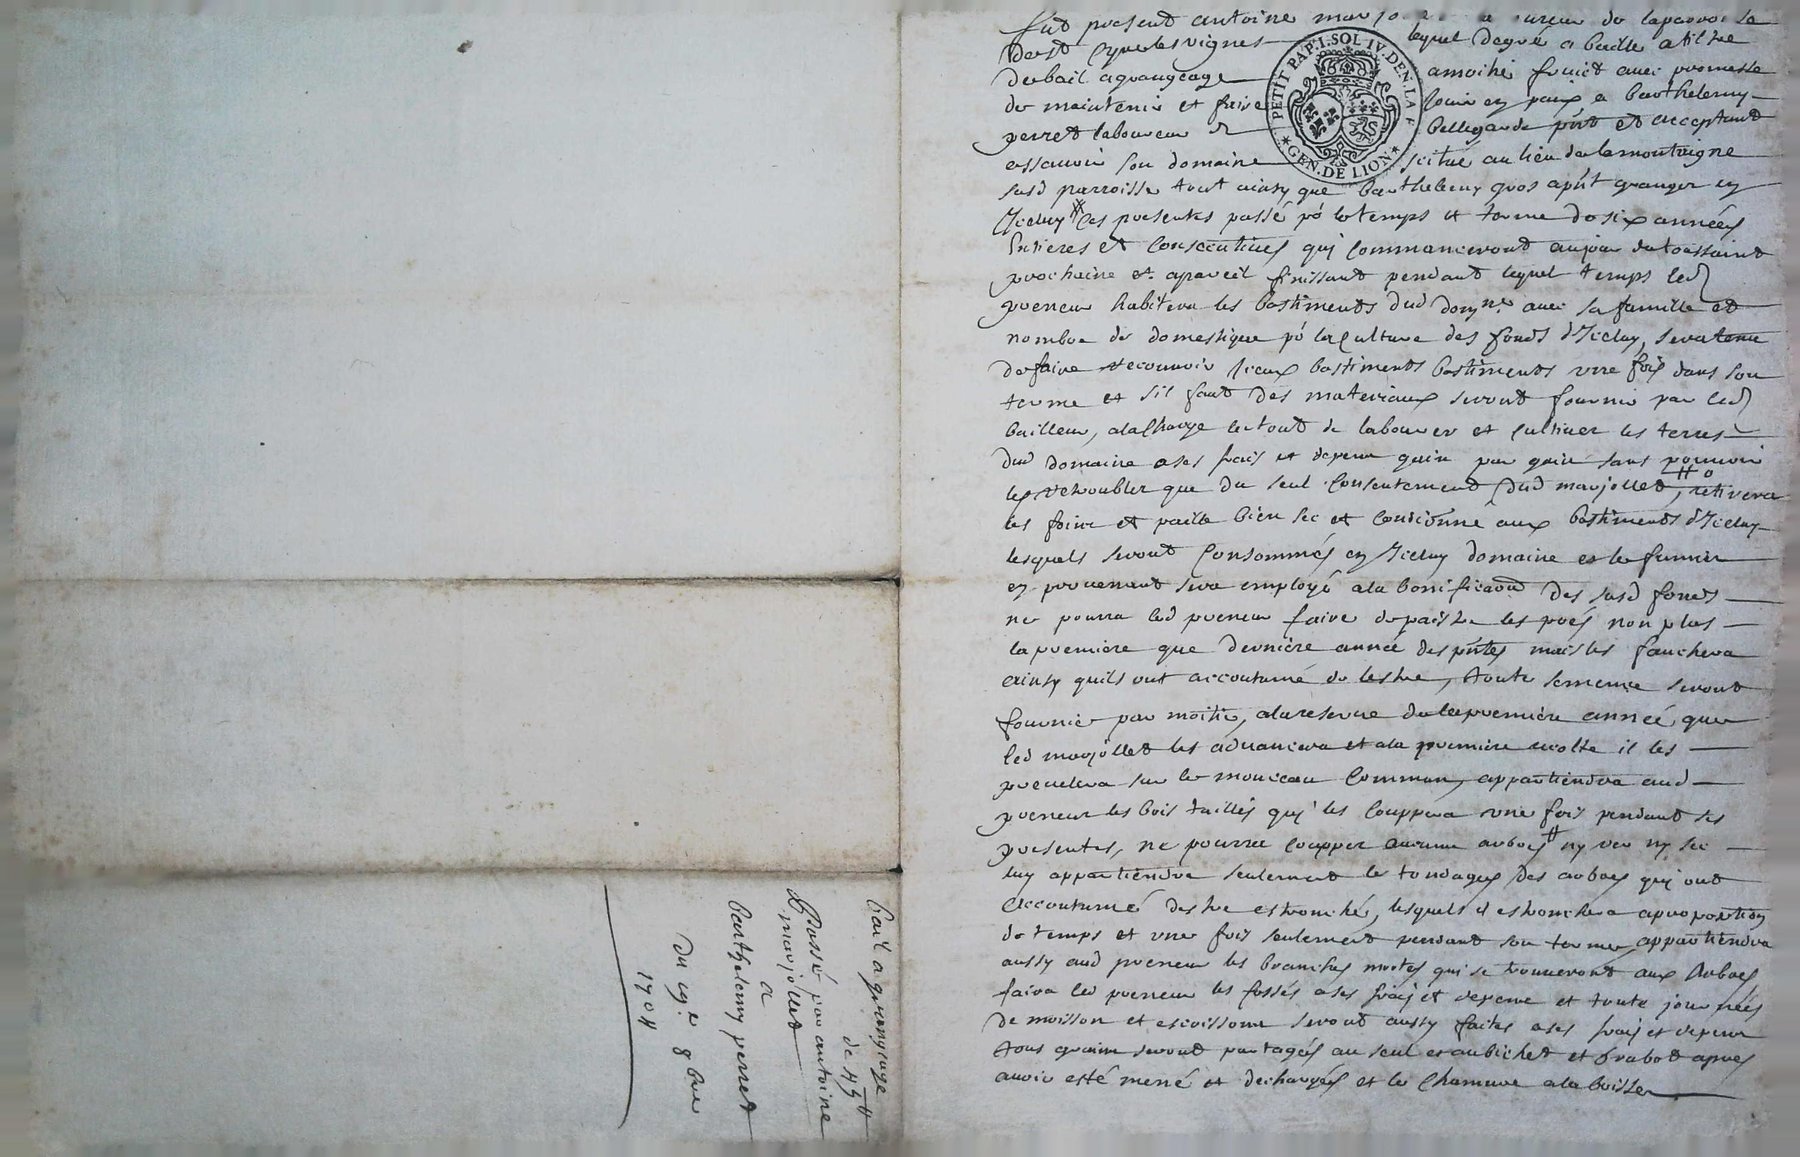 Bail a grangeage
de 45 #
Passé par antoine
marjollet
a
barthelemy perret
Du 19e 8bre
1704
PETIT PAP. I. SOL IV. DEN. LA F
GEN. DE LION
fut present antoine marjo de laparroisse
de st lequel degré a baillé a tiltre
de bail a grangeage amoitié fruict avec promesse
de maintenir et faire jouir en paix a barthelemy
perret laboureur de bellegarde pnt et acceptant
assavoir son domaine scitué au lieu de lamontaigne
susd parroisse tout ainsy que barthelemy gros apnt granger en
Jceluy # ces presentes passé po le temps et terme de six années
Entieres et Consecutives quj Commanceront aujour de toussaint
prochaine et apareil finissant pendant lequel temps led
preneur habitera les bastiments dud domne avec sa famille et
nombre de domestique po la Culture des fonds dJceluy, sera tenu
de faire recouvrir Jceux bastiments bastiments une fois dans son
terme et sil faut des materiaux seront fournir par led
bailleur, alacharge le tout de labourer et Cultiver les terres
dud domaine a ses frais et depens sans pouvoir
les retroubler que du seul Consentement dud marjollet, # o retirera
les foins et paille bien sec et Conditionné aux bastiments dJceluy
lesquels seront Consommés en Jceluy domaine et le fumier
en provenant sera employé ala bonificaon des susd fonds
ne pourra led preneur faire depaistre les prés non plus
la premiere que derniere année des pntes mais les fauchera
ainsy quils ont accoutumé de lestre, toute semence seront
fournie par moitié, ala reserve de la premiere année que
led marjollet les advancera et ala premiere recolte il les
prenelera sur le monceau Commun, appartiendra aud
preneur les bois taillés quj les Couppera une fois pendant les
presentes, ne pourra coupper aucuns arbres # ny ver ny sec
luy appartiendra seulement le tondages des arbres quj ont
accoutumé destre estronché, lesquels il estronchera aproportion
de temps et une fois seulement pendant son terme, appartiendra
aussy aud preneur les branches mortes qui se trouveront aux Arbres
faira led preneur les fossés a ses frais et depens et toute journées
de moisson et escoissons seront aussy faites a ses frais et depens
tous grains seront partagés au seul et aubichet et brabot apres
avoir esté mené et dechargés et le Chanvre ala boisse